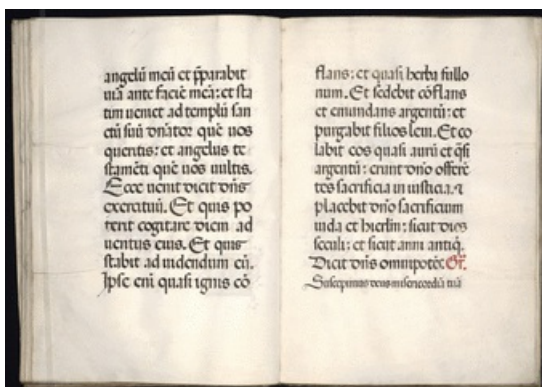 angelū meū et p̄parabit
uiā ante faciē meā: et sta
tim ueniet ad templū san
ctū suū dn̄ator quē uos
queritis: et angelus te
stamēti quē uos uultis.
Ecce uenit dicit dn̄s
exercituū. Et quis po
terit cogitare diem ad
uentus eius. Et quis
stabit ad uidendum eū.
Ipse eni quasi ignis cō
flans: et quasi herba fullo
num. Et sedebit cōflans
et emundans argentū: et
purgabit filios leui. Et co
labit eos quasi aurū et q̄si
argentū: erunt dn̄o offerē
tes sacrificia in iusticia. ⁊
placebit dn̄o sacrificium
iuda et hierl̄m: sicut dies
seculi: et sicut anni antiq̄.
Dicit dn̄s omnipotēs. Gr̄.
Suscepimus deus misericordiā tuā